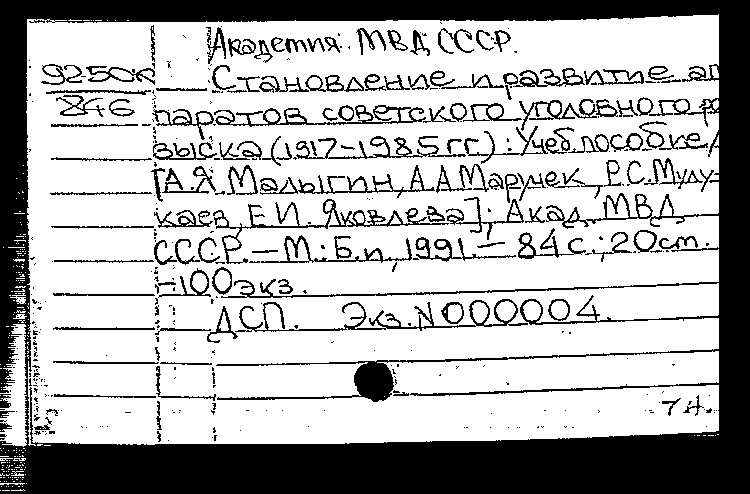 Академия МВД СССР.
92-50к Становление и развитие ап
846 паратов советского уголовного ро
зыска (1917-1985 гг.): Учеб. пособие /
[А.Я. Малыгин, А.А. Марунек, Р.С. Мулу-
каев, Е.И. Яковлева]; Акад. МВД
СССР. — М.: Б.и., 1991. — 84 с.; 20 см.
-100 экз.
ДСП. Экз. N 000004.